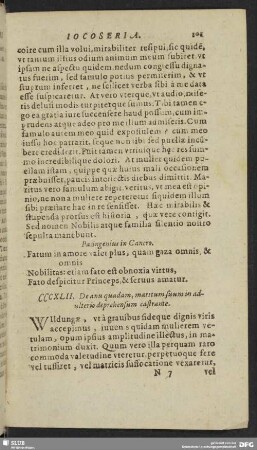 IOCOSERIA. 101
coire cum illa volui, mirabiliter respui, sic quidē,
vt tantum istius odium animum meum subiret vt
ipsum ne aspectu quidem nedum congressu dignatus
fuerim, sed famulo potius permiserim, & vt
stuprum inferret, ne scilicet verba sibi à me data
esse suspicaretur. At vero vterque, vt audio, miseris
delusi modis turpiterque sumus. Tibi tamen ego
ea gratia iure succensere haud possim, cum imprudens
atque adeo pro me illum admiserit. Cum
famulo autem meo quid expostulem è cum meo
iussu hoc patrarit, seque non ibi sed puellæ incubere
crediderit. Ptit tamen vtrinque hęc res summo
incredibilique dolori. At mulier quidem puellam
istam, quippe quæ huius malli occasionem
præbuisset, pauca interiectis diebus dimittit. Maritus
vero famulum abigit. veritus, vt mea est opinio,
ne nouam à muliere repeteret siquidem illum
sibi præstare hac in re sensisset. Hæc mirabilis &
stupenda prorsus est historia, quæ vere contigit.
Sed nomen Nobilis atque familia silentio nostro
sepulta manebunt.
Palingenius in Cancro.
Fatum in amore valet plus, quam gaza omnis, &
omnis
Nobilitas: etiam fato est obnoxia virtus,
Fato despicitur Princeps, & seruus amatur.
CCCXLII. De anu quadam, maritum suum in adulterio
deprehensum castrante.
WIldungæ, vt à grauibus fideque dignis viris
accepimus, iuuenis quidam mulierem vetulam,
opum ipsius amplitudine illectus, in matrimonium
duxit. Quum vero illa perquam raro
commoda valetudine vteretur, perpetuoque fere
vel tussiret, vel matricis suffocatione vexaretur,
N 7 vel
SLUB
DFG